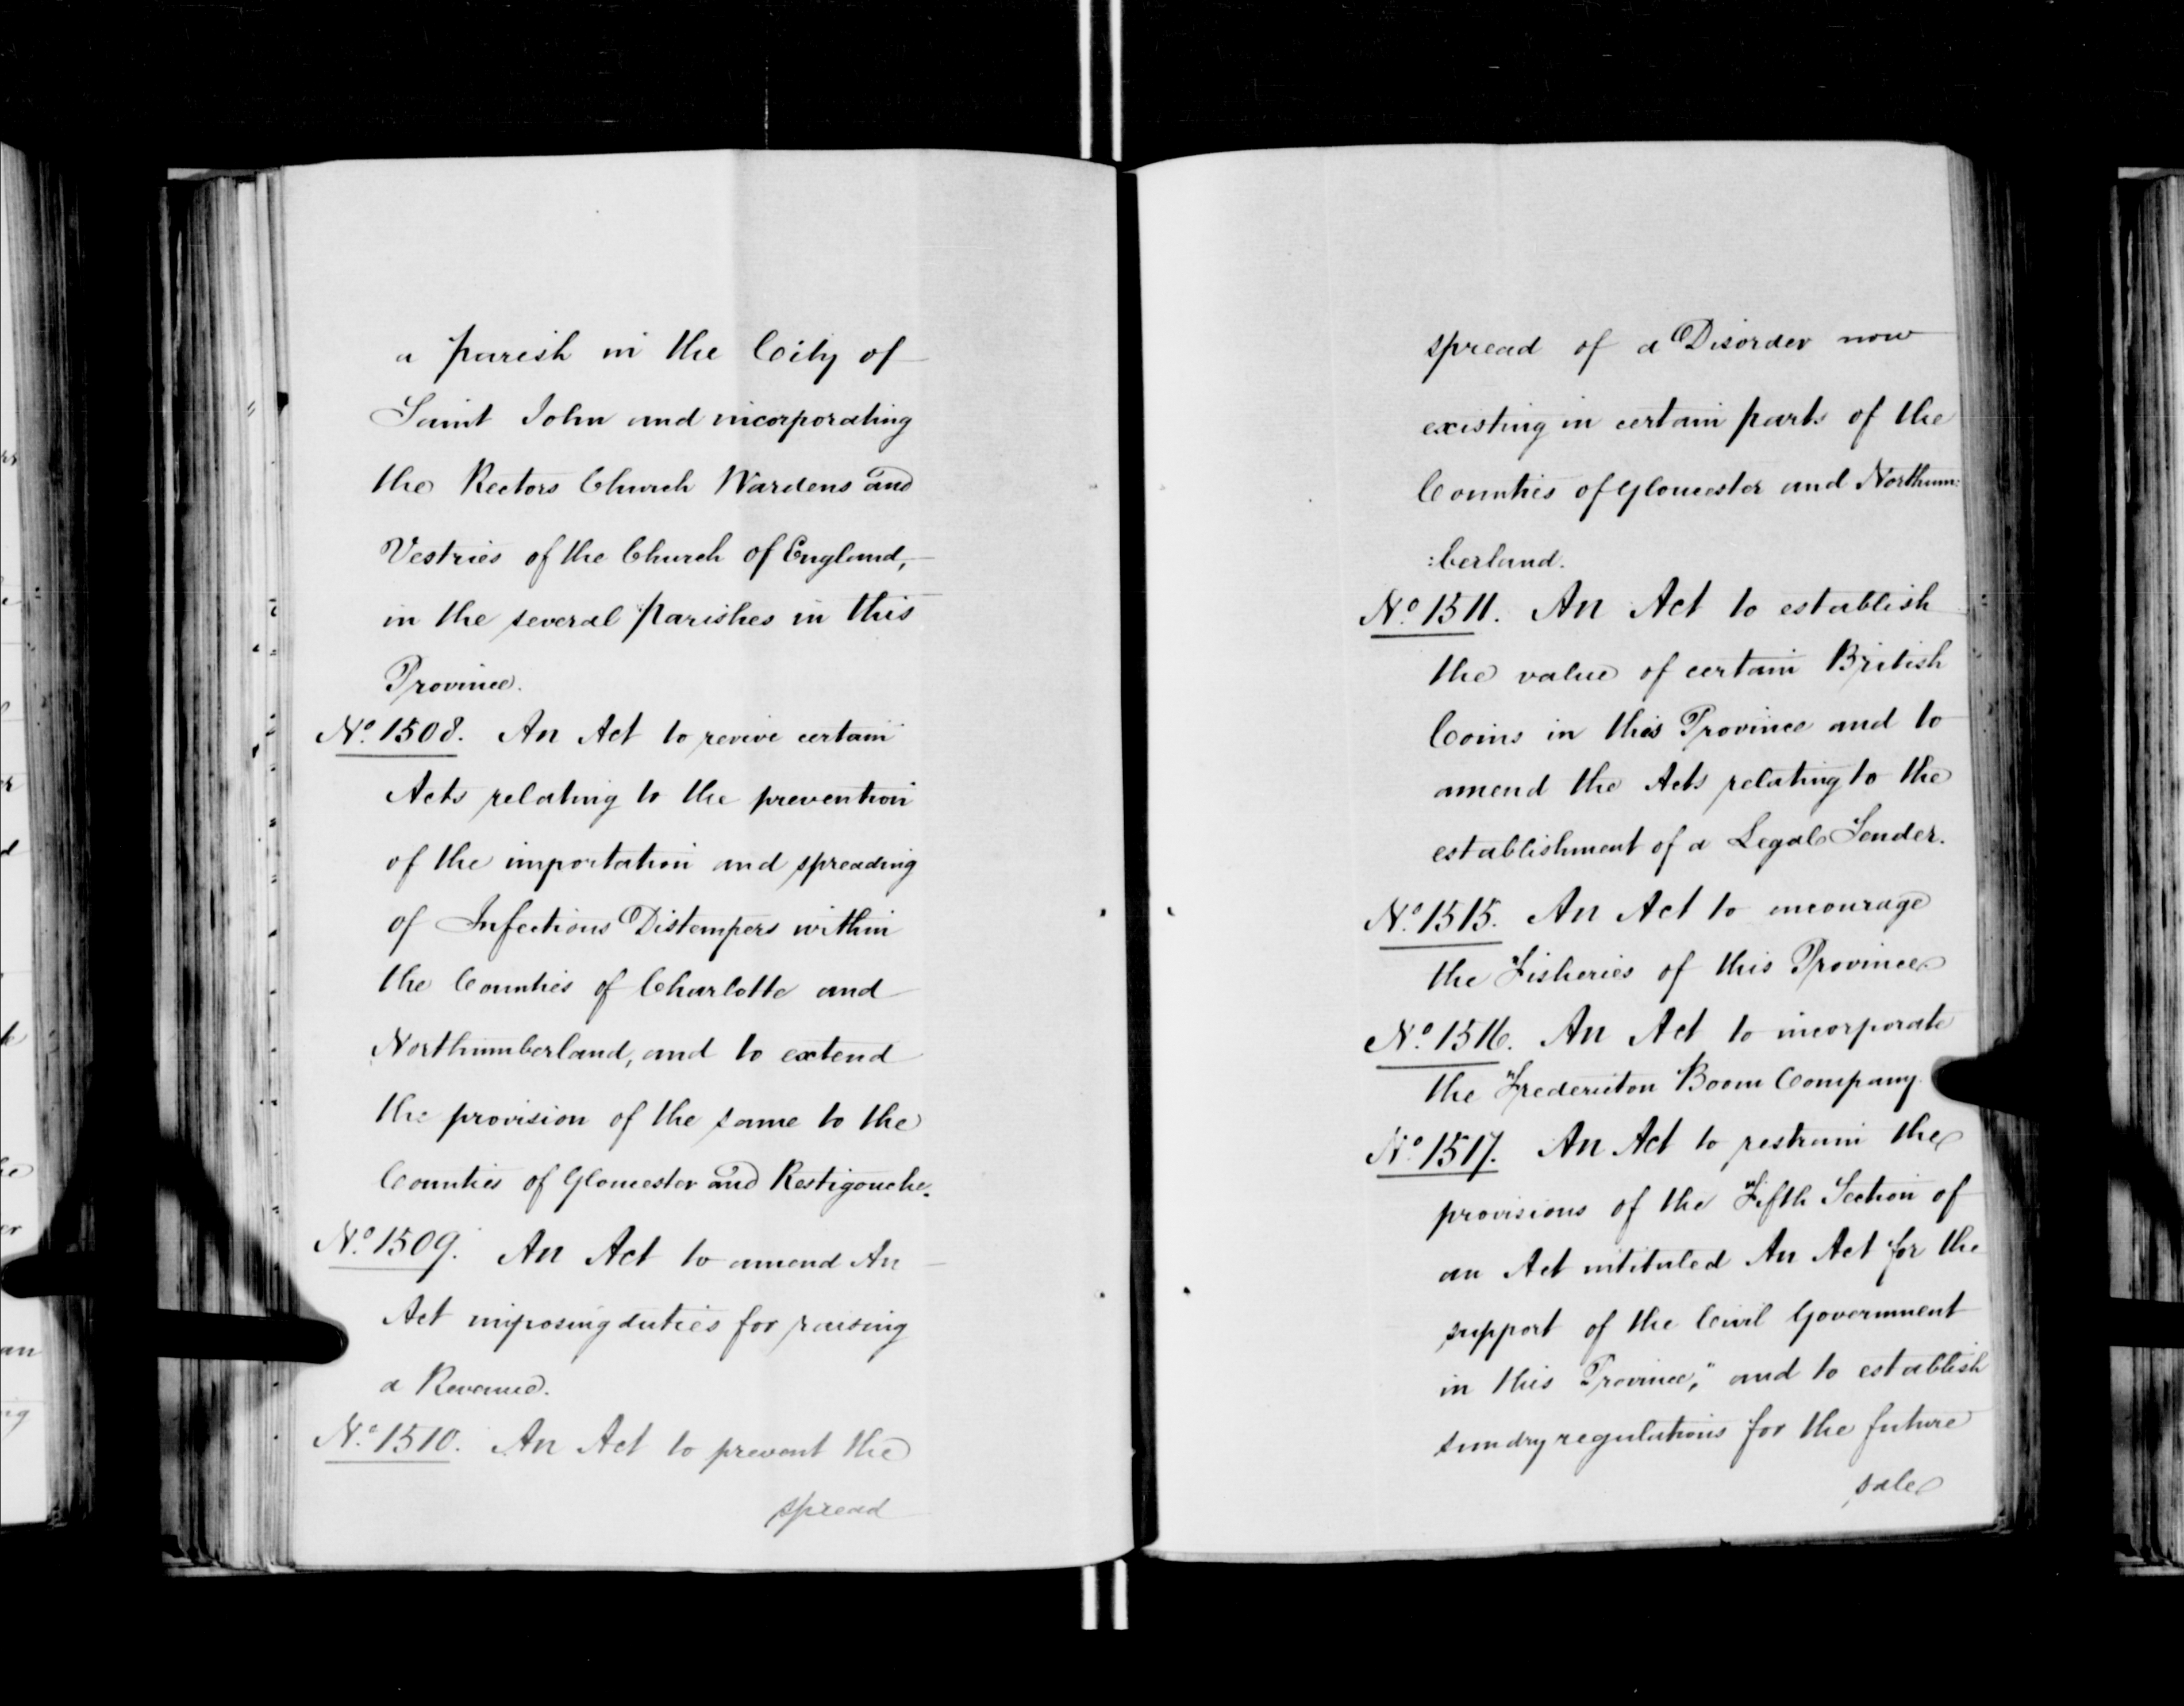 a parish in the City of
Saint John and incorporating
the Rectors Church Wardens and
Vestries of the Church of England,
in the several parishes in this
Province.
No. 1508. An Act to revive certain
Acts relating to the prevention
of the importation and spreading
of Infectious Distempers within
the Counties of Charlotte and
Northumberland, and to extend
the provision of the same to the
Counties of Gloucester and Restigouche.
No. 1509. An Act to amend An
Act imposing duties for raising
a Revenue.
No. 1510. An Act to prevent the
spread
spread of a Disorder now
existing in certain parts of the
Counties of Gloucester and Northum:
:berland.
No. 1511. An Act to establish
the value of certain British
Coins in this Province and to
amend the Acts relating to the
establishment of a Legal Tender.
No. 1515. An Act to encourage
the Fisheries of this Province
No. 1516. An Act to incorporate
the Fredericton Boom Company
No. 1517. An Act to restrain the
provisions of the Fifth Section of
an Act intituled An Act for the
support of the Civil Government
in this Province," and to establish
sundry regulations for the future
sale